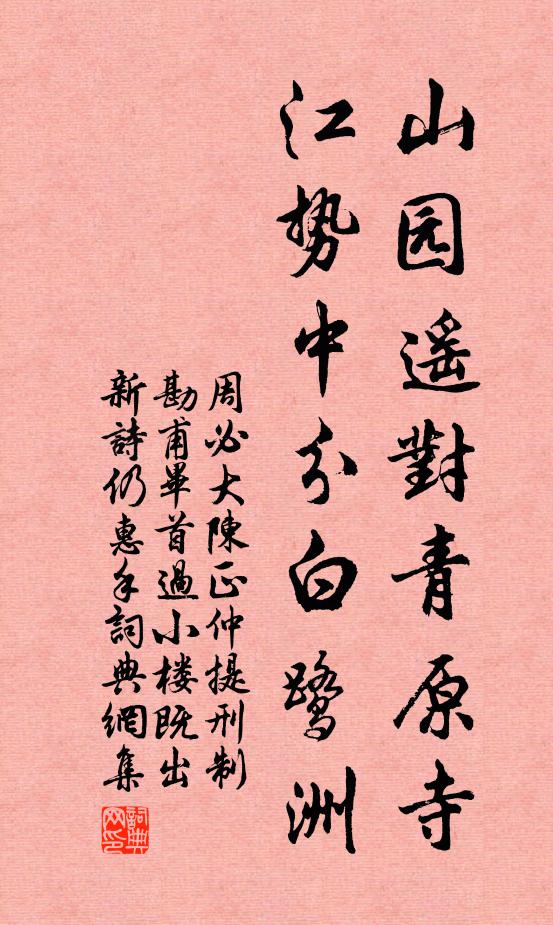 山园遥對青原寺
江势中分白鹭洲
周必大陳正仲提刑制
勘甫畢首過小楼既出
新詩仍惠手詞典網集
詞典网印